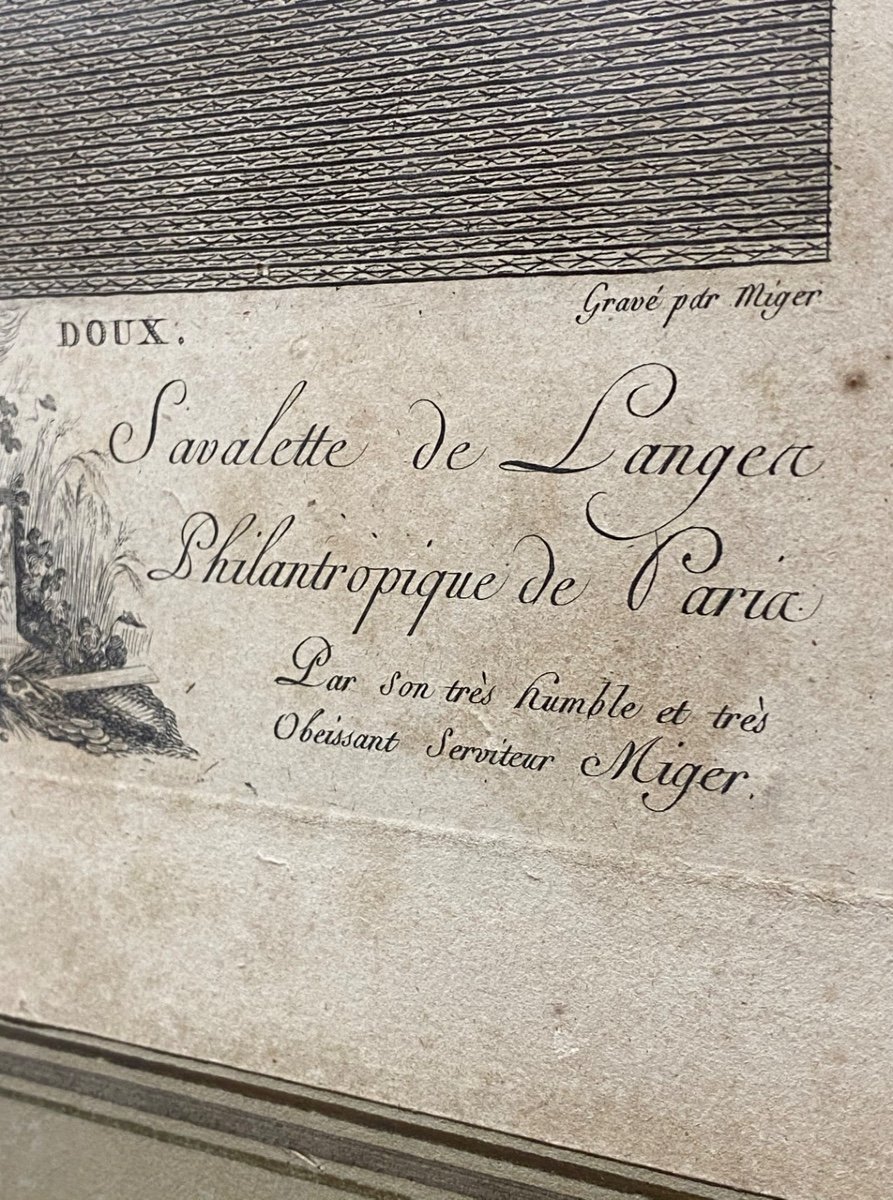 Gravé par Miger
DOUX.
Savalette de Langes
Philantropique de Paris.
Par son très humble et très
Obeissant Serviteur Miger.